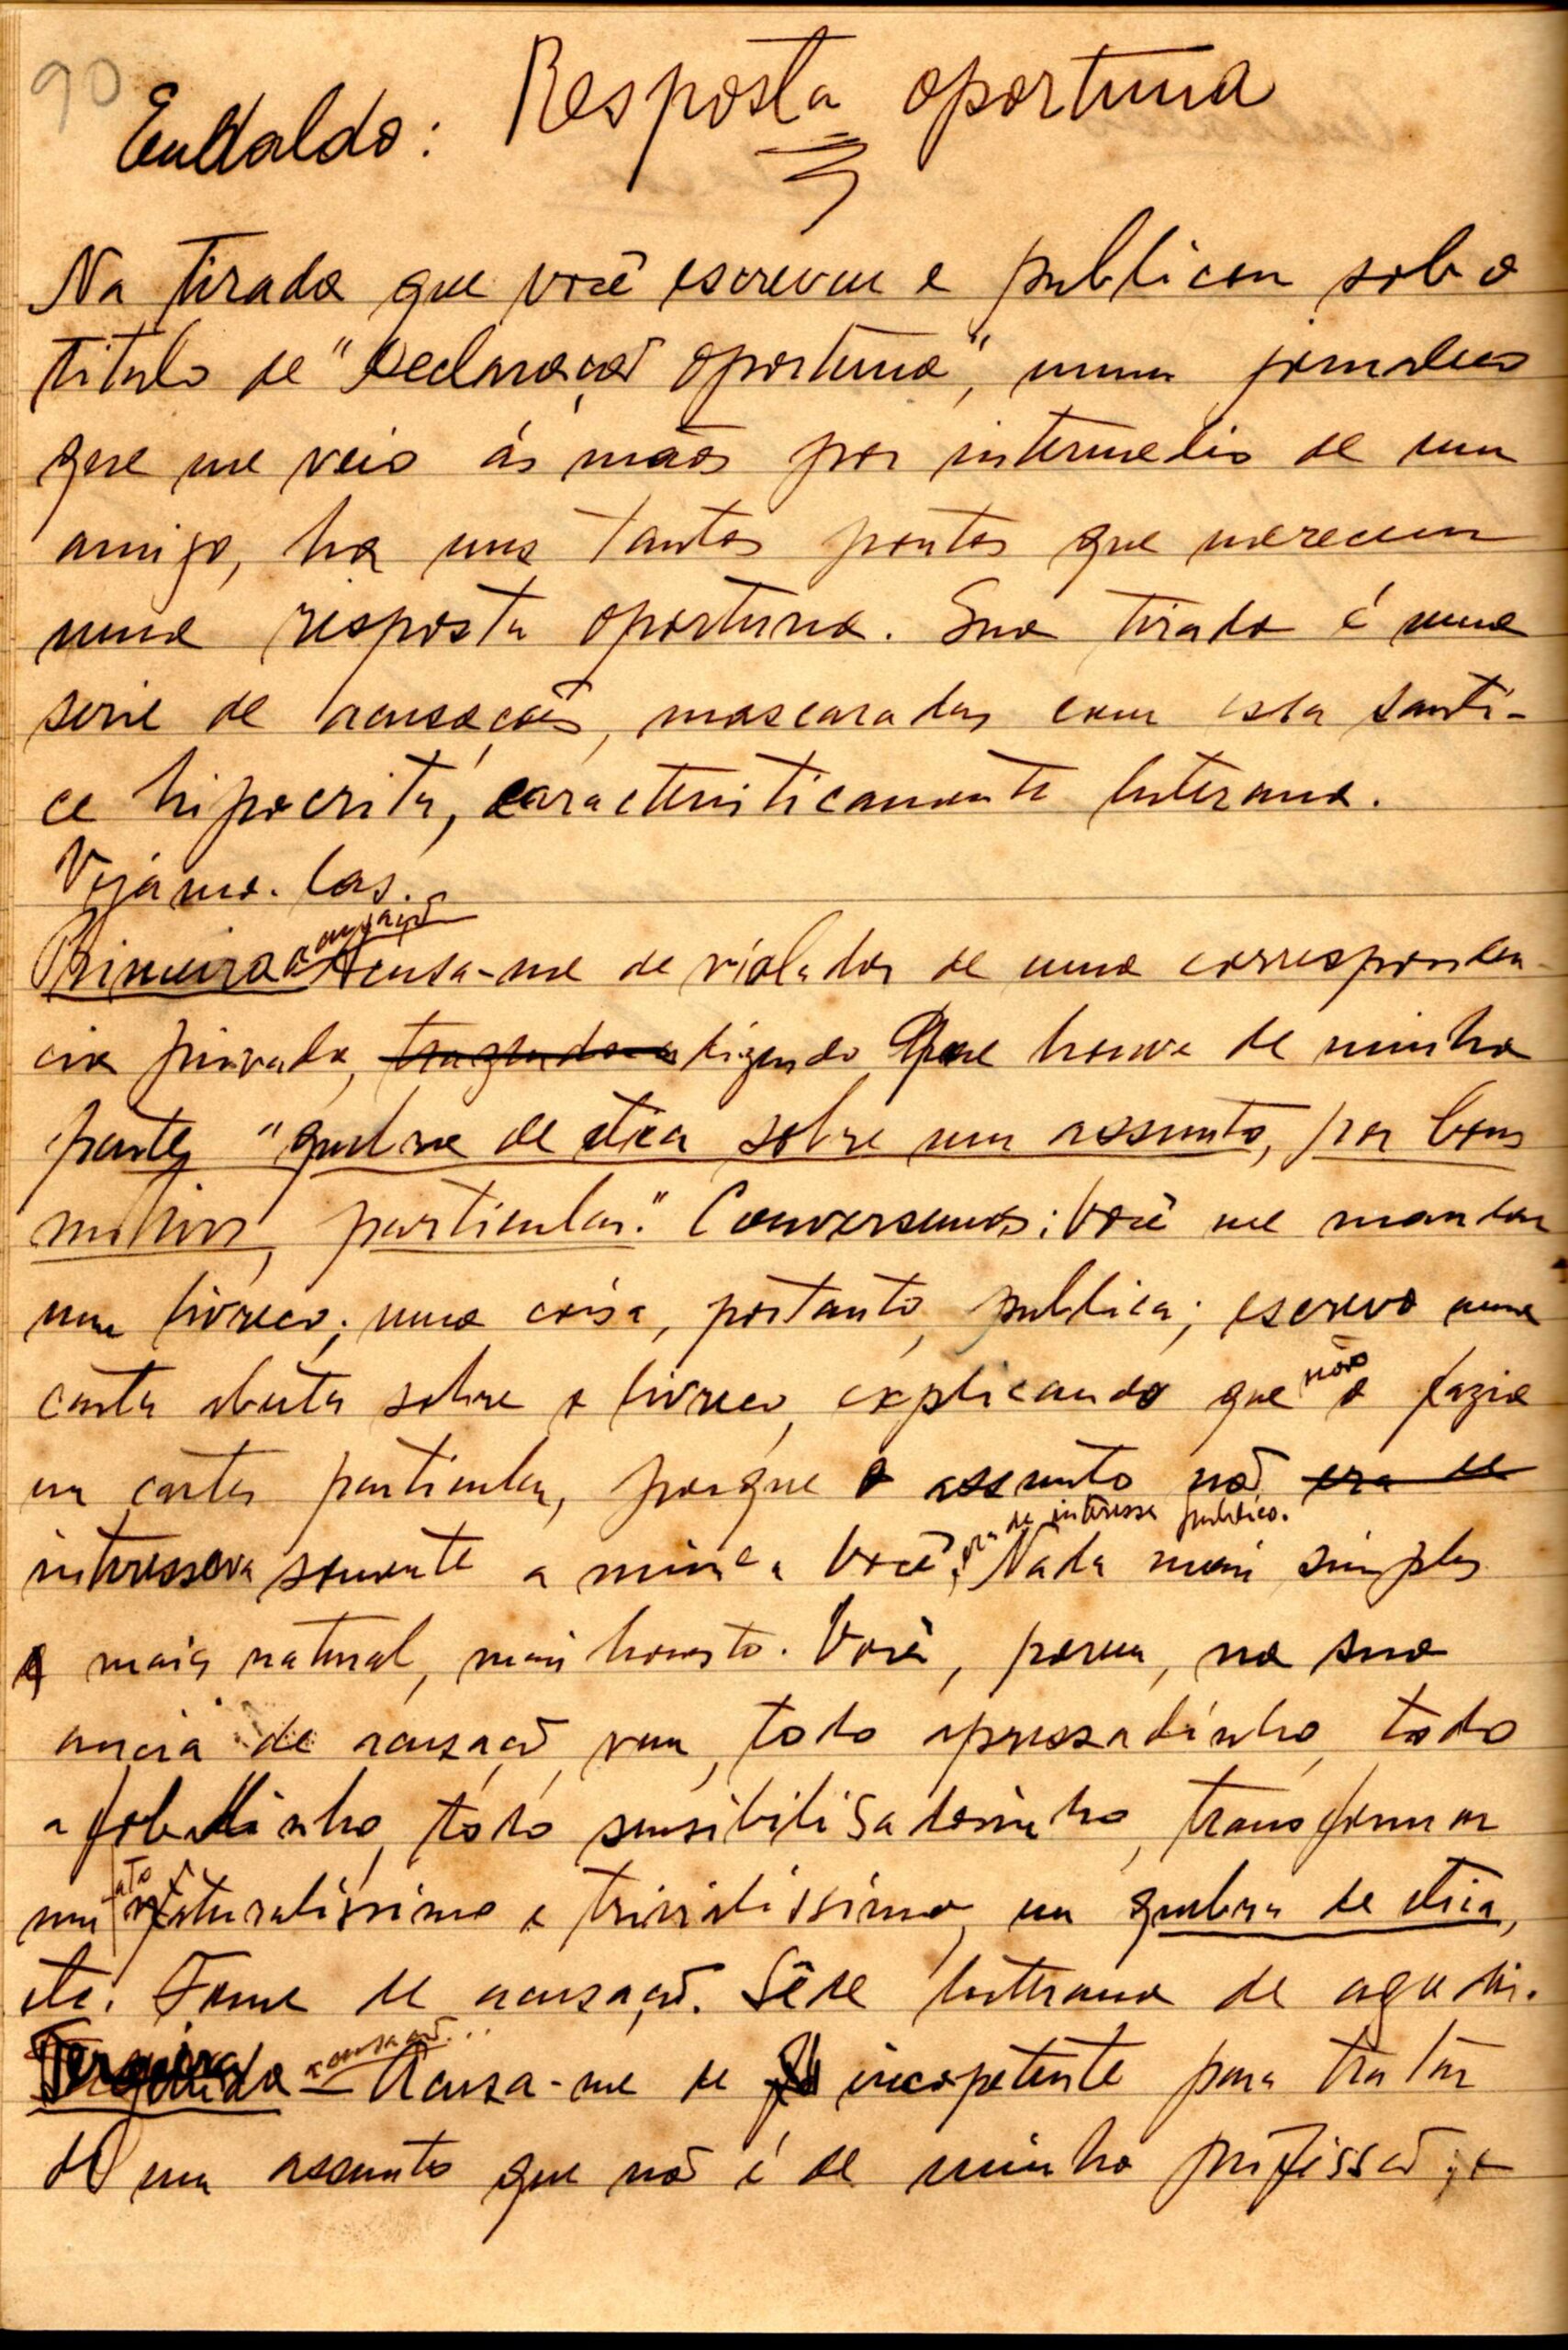 90
Resposta oportuna
Euvaldo:
Na tirada que você escreveu e publicou sob o
titulo de "Declaração oportuna", num jornaleco
que me veio ás mãos por intermedio de um
amigo, ha uns tantos pontos que merecem
uma resposta oportuna. Sua tirada é uma
serie de acusações, mascaradas com esta santi-
ce hipocrita, caracteristicamente luterana.
Vejamo-las.
Primeira acusação Acusa-me de violador de uma corresponden-
cia privada, dizendo que houve de minha
parte, "quebra de etica sobre um assunto, por bons
motivos, particular." Conversemos: Você me mandou
um livreco; uma coisa, portanto, publica; escrevo uma
carta aberta sobre o livreco, explicando que não o fazia
em carta particular, porque o assunto não era de
interessava somente a mim e a você, era de interesse publico. Nada mais simples
e mais natural, mais honesto. Você, porem, na sua
ancia de acusação, vem, todo apressadinho, todo
afobadinho, todo sensibilisadosinho, transformar
um fato naturalissimo e trivialissimo, em quebra de etica,
etc. Fome de acusação. Sêde luterana de agredir.
Terceira acusação... Acusa-me de incopetente para tratar
de um assunto que não é de minha profissão, e